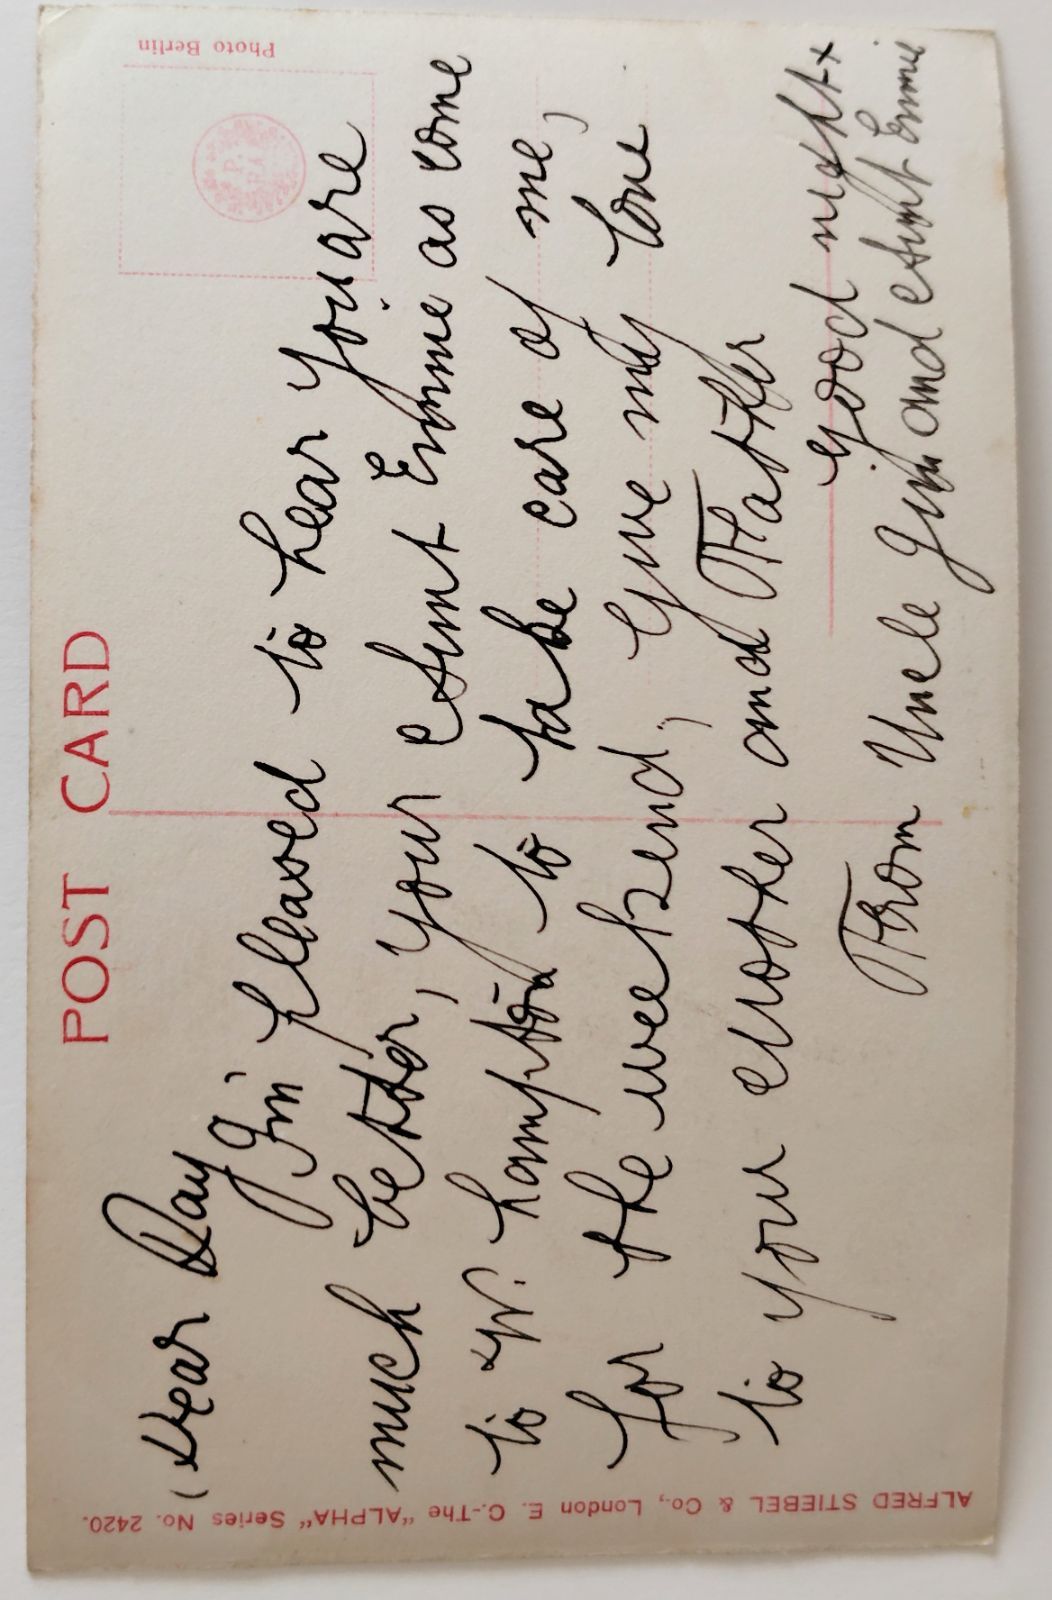 POST CARD
Dear Day
Jim pleased to hear you are
much better, your Aunt Emmie as come
to W. hampton to take care of me,
for the weekend, Give my love
to your Mother and Father
Good night x
From Uncle Jim and Aunt Emmie
Photo Berlin
ALFRED STIEBEL & Co., London E. C.-The "ALPHA" Series No. 2420.